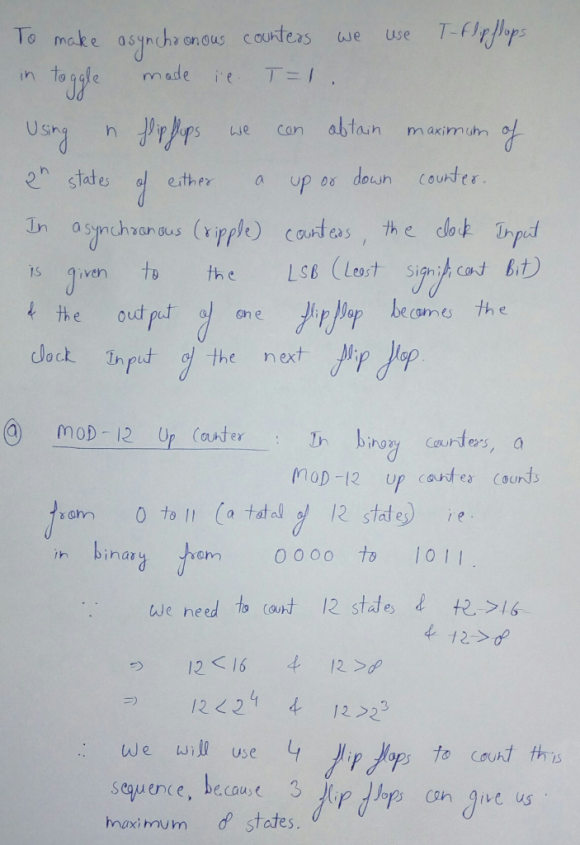 To make asynchronous counters we use T-flipflops
in toggle mode i.e. T=1.
Using n flipflops we can obtain maximum of
2ⁿ states of either a up or down counter.
In asynchronous (ripple) counters, the clock Input
is given to the LSB (Least significant Bit)
& the output of one flipflop becomes the
clock Input of the next flip flop.
ⓐ MOD-12 Up Counter : In binary counters, a
MOD-12 up counter counts
from 0 to 11 (a total of 12 states) i.e.
in binary from 0000 to 1011.
∵ We need to count 12 states & 12->16
& 12->8
⇒ 12<16 & 12>8
⇒ 12<2⁴ & 12>2³
∴ We will use 4 flip flops to count this
sequence, because 3 flip flops can give us
maximum 8 states.